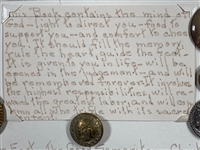 This Book contains the mind of
God - light to direct you - food to
support you - and comfort to cheer
you. It should fill the memory
rule the heart, guide the feet.
It is given to you in life - will be
opened in the judgement - and will
be remembered forever. It involves
the highest responsibilities, will re-
ward the greatest labor, and will con-
demn all who trifle with its sacred